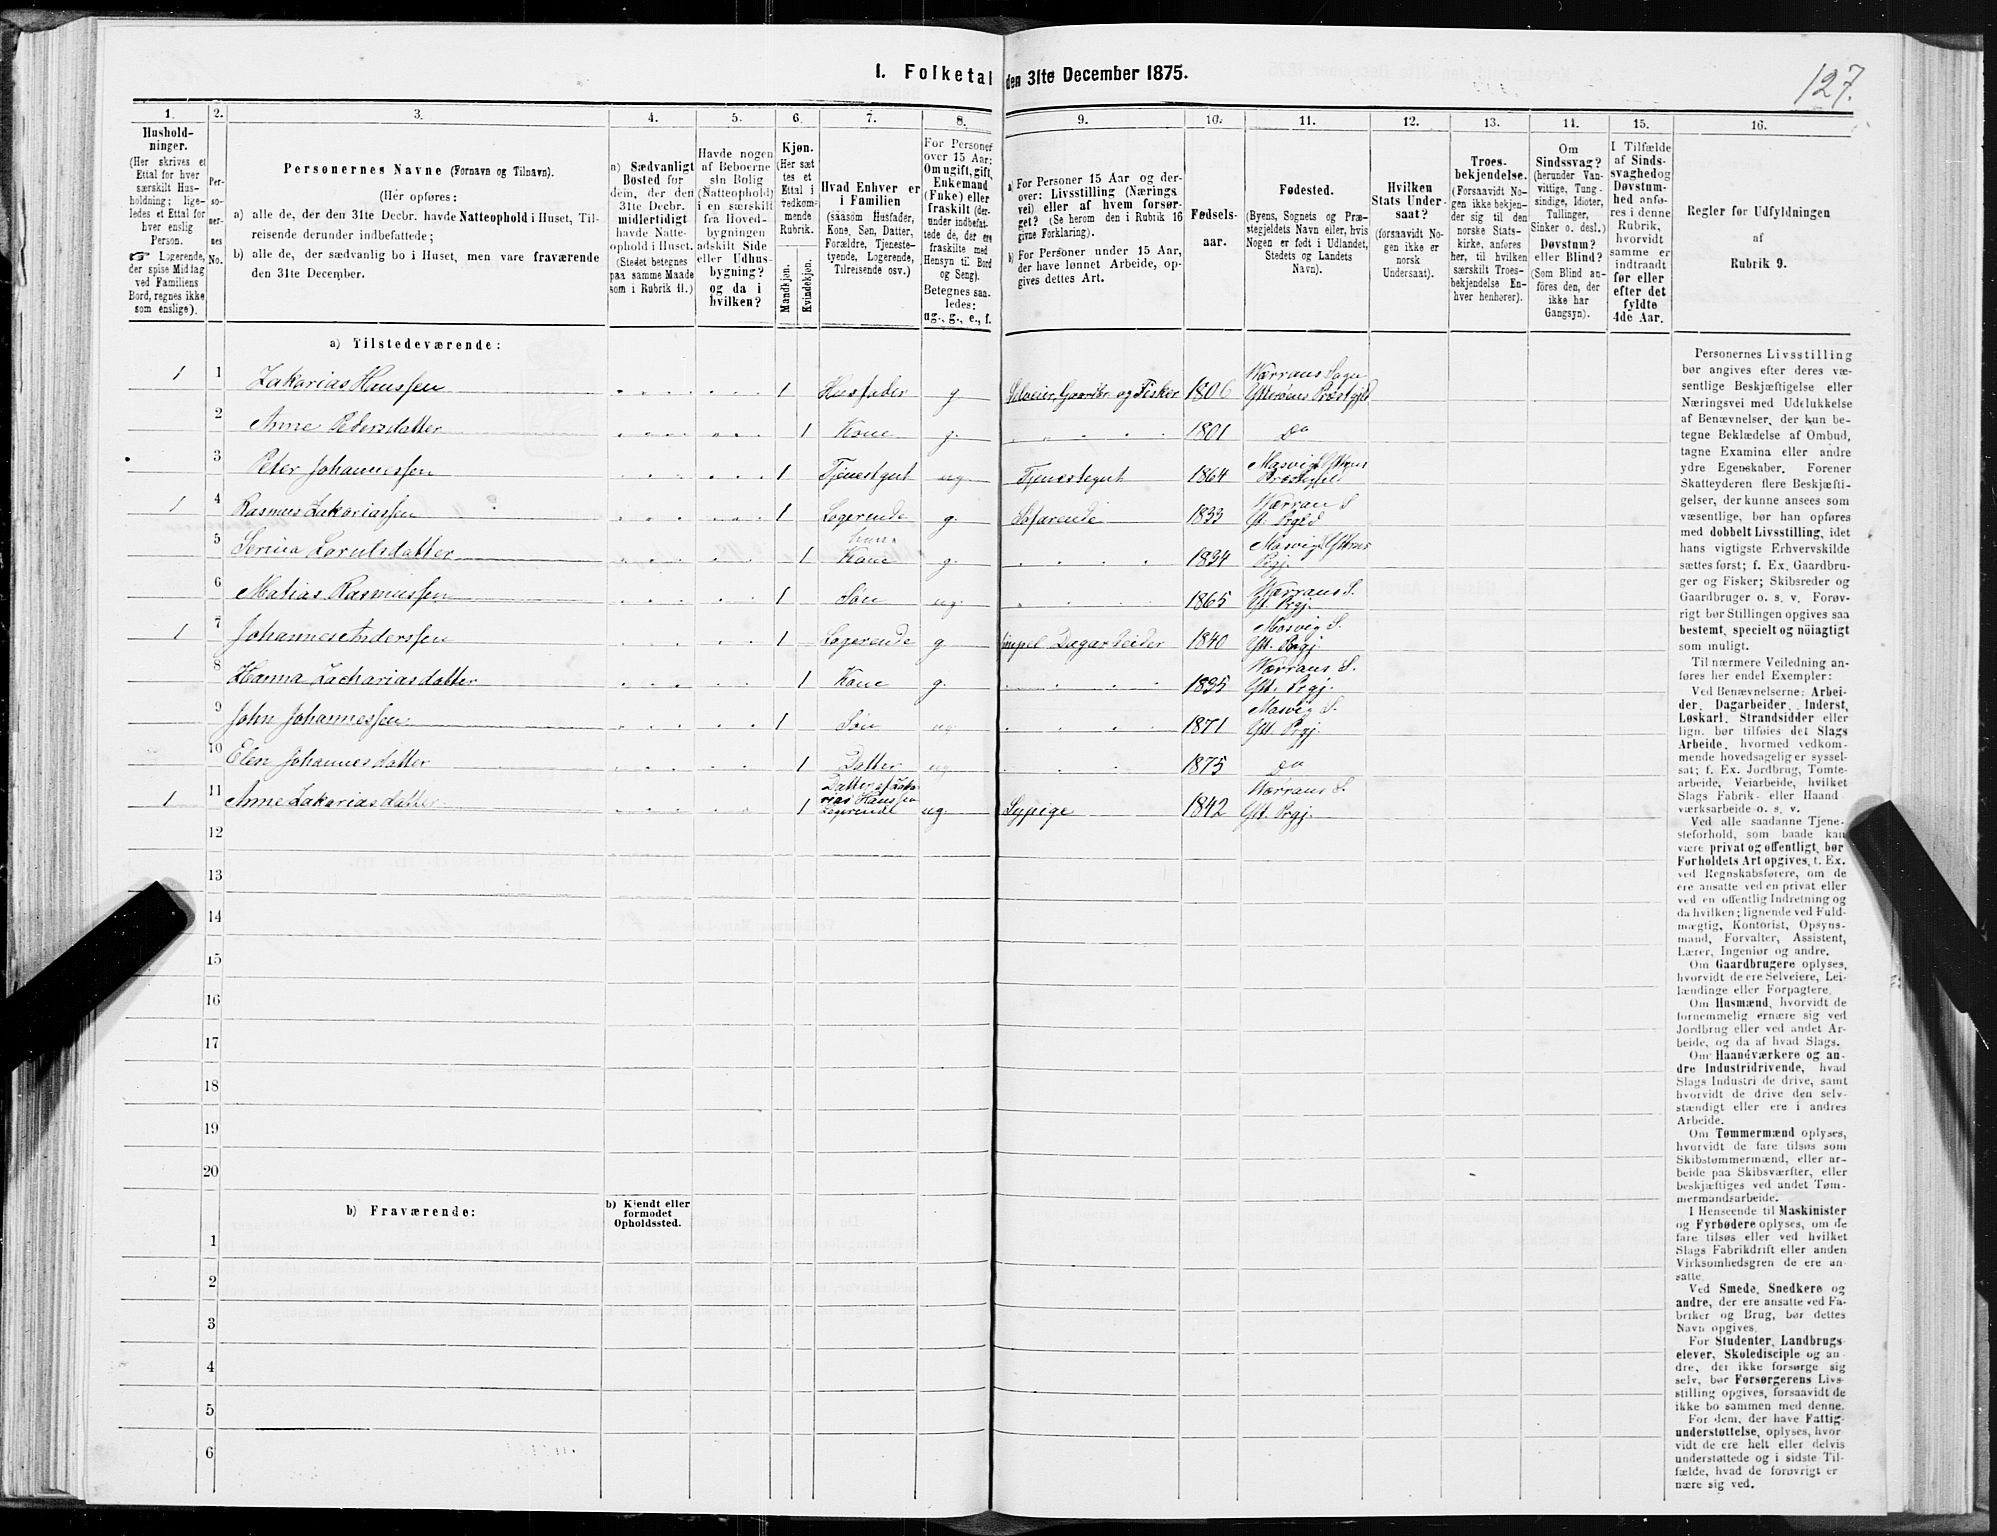 I. Folketal den 31te December 1875.
127.
1.
Husholdninger.
(Her skrives et
Ettal for hver
særskilt Husholdning;
ligeledes et Ettal for
hver enslig
Person.
☞ Logerende,
der spise Middag
ved Familiens
Bord, regnes ikke
som enslige).
2.
Personernes
No.
3.
Personernes Navne (Fornavn og Tilnavn).
(Her opføres:
a) alle de, der den 31te Decbr. havde Natteophold i Huset, Tilreisende derunder indbefattede;
b) alle de, der sædvanlig bo i Huset, men vare fraværende
den 31te December.
4.
a) Sædvanligt
Bosted for
dem, der den
31te Decbr.
midlertidigt
havde Natteophold
i Huset.
(Stedet betegnes
paa samme Maade
som i Rubrik 11.)
5.
Havde nogen
af Beboerne
sin Bolig
(Natteophold)
i en særskilt
fra Hovedbygningen
adskilt Side
eller Udhusbygning?
og da i
hvilken?
6.
Kjøn.
(Her sættes
et Ettal i
vedkommende
Rubrik.
Mandkjøn.
Kvindekjøn.
7.
Hvad Enhver er
i Familien
(saasom Husfader,
Kone, Søn, Datter,
Forældre, Tjenestetyende,
Logerende,
Tilreisende osv.)
8.
For Personer
over 15 Aar:
Om ugift, gift,
Enkemand
(Enke) eller
fraskilt (derunder
indbefattede
de, der ere
fraskilte med
Hensyn til Bord
og Seng).
Betegnes saaledes:
ug., g., e., f.
9.
a) For Personer 15 Aar og derover:
Livsstilling (Næringsvei)
eller af hvem forsørget?
(Se herom den i Rubrik 16
givne Forklaring).
b) For Personer under 15 Aar,
der have lønnet Arbeide, opgives
dettes Art.
10.
Fødselsaar.
11.
Fødested.
(Byens, Sognets og Præstegjeldets
Navn eller, hvis
Nogen er født i Udlandet,
Stedets og Landets
Navn).
12.
Hvilken
Stats Undersaat?
(forsaavidt Nogen
ikke er
norsk
Undersaat).
13.
Troesbekjendelse.
(Forsaavidt Nogen
ikke bekjender
sig til den
norske Statskirke,
anføres
her, til hvilken
særskilt Troesbekjendelse
Enhver
henhører).
14.
Om
Sindssvag?
(herunder Vanvittige,
Tungsindige,
Idioter,
Tullinger,
Sinker o. desl.)
Døvstum?
eller Blind?
(Som Blind anføres
den, der
ikke har
Gangsyn).
15.
I Tilfælde
af Sindssvaghed
og
Døvstumhed
anføres
i denne
Rubrik,
hvorvidt
samme er
indtraadt
før eller
efter det
fyldte
4de Aar.
16.
Regler for Udfyldningen
af
Rubrik 9.
a) Tilstedeværende:
1 1 Zakarias Hanssen 1 Husfader g Selveier, Gaardbr. og Fisker 1806 Værrans Sogn Ytterøens Præstgjeld
2 Anne Pedersdatter 1 Kone g. 1801 Do
3 Peter Johannessen 1 Tjenestgut ug. Tjenestegut 1864 Mosvig Præstegjeld
1 4 Rasmus Zakariassen 1 Logerende g. Søfarende 1833 Værran S Prgjld
5 Serina Lorntsdatter 1 hans Kone g. 1834 Mosvig Prgj.
6 Matias Rasmussen 1 Søn ug. 1865 Værrans S. Yt. Prgj.
1 7 Johannes Anderssen 1 Logerende g Simpel Dagarbeider 1840 Mosvig S. Ytt. Prgj.
8 Hanna Zachariasdatter 1 Kone g. 1835 Værrans S. Ytt. Prgj.
9 John Johannessen 1 Søn ug. 1871 Mosvig S. Ytt. Prgj.
10 Elen Johannesdatter 1 Datter ug 1875 Do
1 11 Anne Zakariasdatter 1 Datter af Zakarias Hanssen Logerende ug Sypige 1842 Værrans S. Ytt. Prgj.
12
13
14
15
16
17
18
19
20
b) Fraværende:
b) Kjendt eller
formodet
Opholdssted.
1
2
3
4
5
6
Personernes Livsstilling
bør angives efter deres væsentlige
Beskjæftigelse eller
Næringsvei med Udelukkelse
af Benævnelser, der kun betegne
Beklædelse af Ombud,
tagne Examina eller andre
ydre Egenskaber. Forener
Skatteyderen flere Beskjæftigelser,
der kunne ansees som
væsentlige, bør han opføres
med dobbelt Livsstilling, idet
hans vigtigste Erhvervskilde
sættes først; f. Ex. Gaardbruger
og Fisker; Skibsreder og
Gaardbruger o. s. v. Forøvrigt
bør Stillingen opgives saa
bestemt, specielt og nöiagtigt
som muligt.
Til nærmere Veiledning anføres
her endel Exempler:
Ved Benævnelserne: Arbeider,
Dagarbeider, Inderst,
Løskarl, Strandsidder eller
lign. bør tilføies det Slags
Arbeide, hvormed vedkommende
hovedsagelig er sysselsat;
f. Ex. Jordbrug, Tomtearbeide,
Veiarbeide, hvilket
Slags Fabrik- eller Haandværksarbeide
o. s. v.
Ved alle saadanne Tjenesteforhold,
som baade kan
være privat og offentligt, bør
Forholdets Art opgives, f. Ex.
ved Regnskabsførere, om de
ere ansatte ved en privat eller
ved en offentlig Indretning og
da hvilken; lignende ved Fuldmægtig,
Kontorist, Opsynsmand,
Forvalter, Assistent,
Lærer, Ingeniør og andre.
Om Gaardbrugere oplyses,
hvorvidt de ere Selveiere, Leilændinge
eller Forpagtere.
Om Husmænd, hvorvidt de
fornemmelig ernære sig ved
Jordbrug eller ved andet Arbeide,
og da af hvad Slags.
Om Haandværkere og andre
Industridrivende, hvad
Slags Industri de drive, samt
hvorvidt de drive den selvstændigt
eller ere i andres
Arbeide.
Om Tømmermænd oplyses,
hvorvidt de fare tilsøs som
Skibstømmermænd, eller arbeide
paa Skibsværfter, eller
beskjæftiges ved andet Tømmermandsarbeide.
I Henseende til Maskinister
og Fyrbødere oplyses, om de
fare tilsøs eller ved hvilket
Slags Fabrikdrift eller anden
Virksomhedsgren de ere ansatte.
Ved Smede, Snedkere og
andre, der ere ansatte ved Fabriker
og Brug, bør dettes
Navn opgives.
For Studenter, Landbrugselever,
Skoledisciple og andre,
der ikke forsørge sig
selv, bør Forsørgerens Livsstilling
opgives, forsaavidt de
ikke bo sammen med denne.
For dem, der have Fattigunderstøttelse,
oplyses, hvorvidt
de ere helt eller delvis
understøttede og i sidste Tilfælde,
hvad de forøvrigt ernære
sig ved.